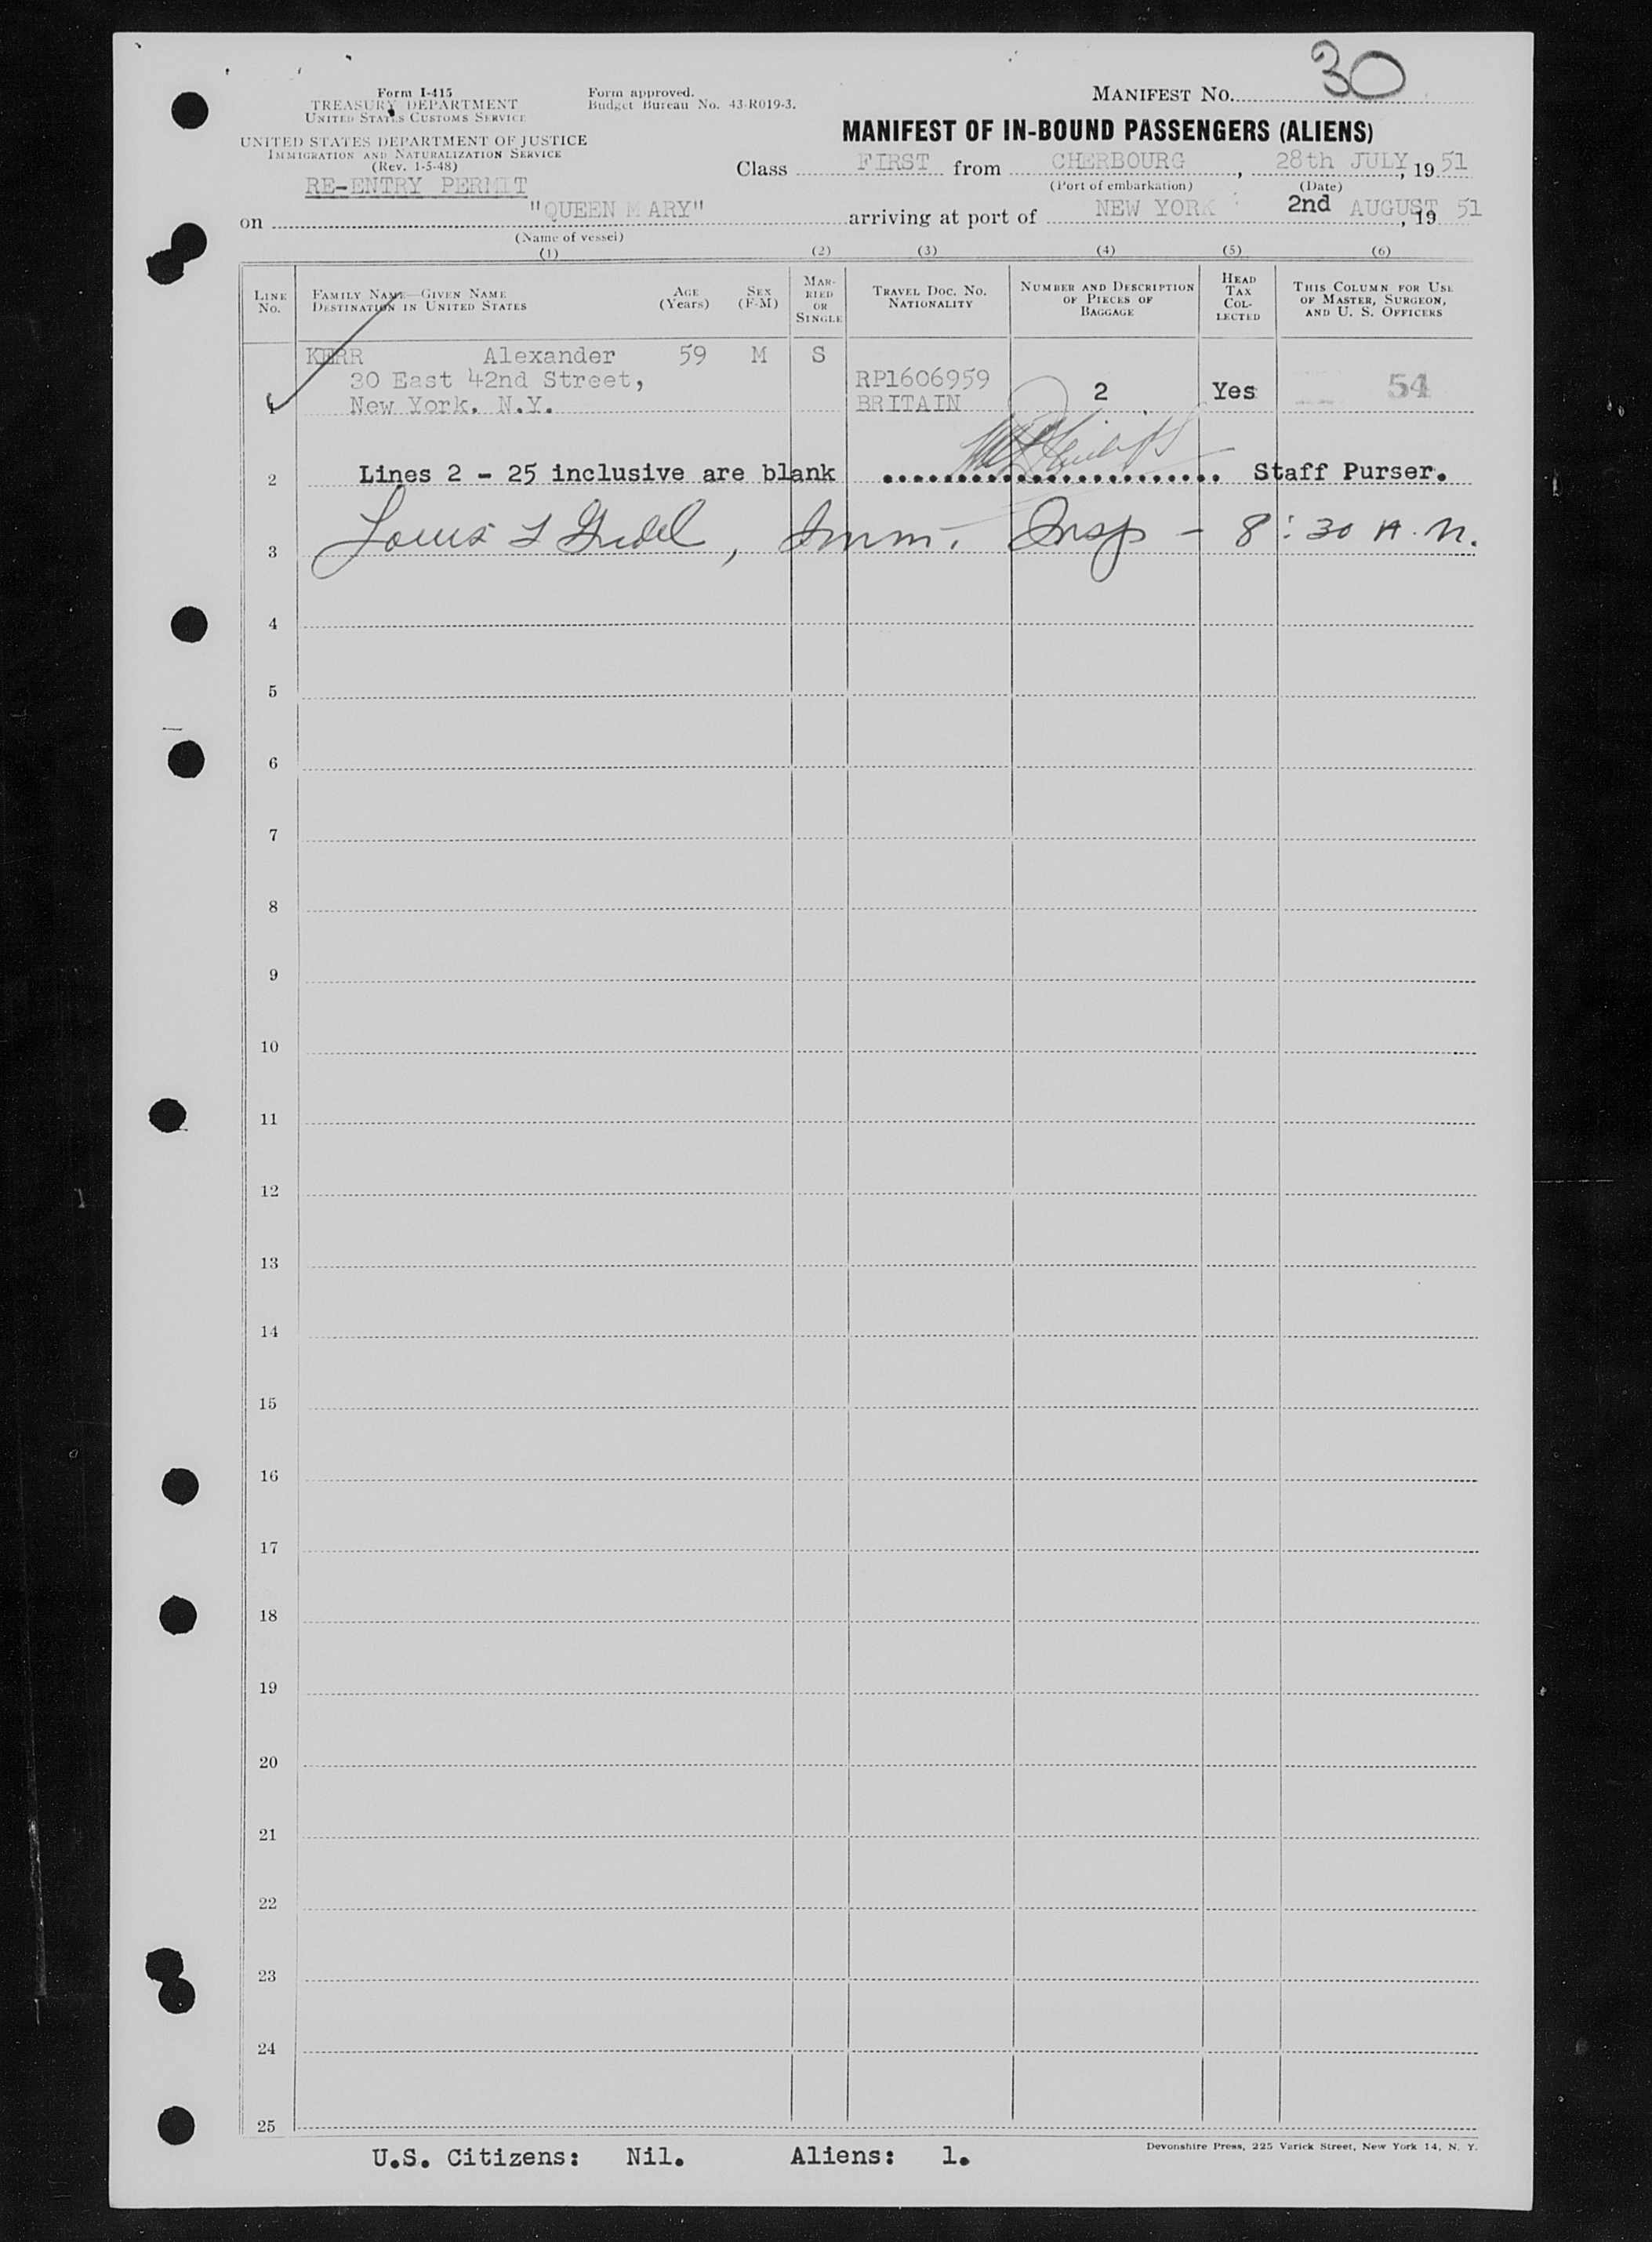 30
Form I-415
TREASURY DEPARTMENT
UNITED STATES CUSTOMS SERVICE
Form approved.
Budget Bureau No. 43-R019-3.
MANIFEST NO.
UNITED STATES DEPARTMENT OF JUSTICE
IMMIGRATION AND NATURALIZATION SERVICE
(Rev. 1-5-48)
MANIFEST OF IN-BOUND PASSENGERS (ALIENS)
RE-ENTRY PERMIT
Class FIRST from CHERBOURG, 28th JULY, 1951
(Port of embarkation) (Date)
on "QUEEN MARY" arriving at port of NEW YORK 2nd AUGUST, 19 51
(Name of vessel)
(1) (2) (3) (4) (5) (6)
LINE NO.
FAMILY NAME—GIVEN NAME
DESTINATION IN UNITED STATES
AGE (Years)
SEX (F-M)
MARRIED OR SINGLE
TRAVEL DOC. NO.
NATIONALITY
NUMBER AND DESCRIPTION OF PIECES OF BAGGAGE
HEAD TAX COLLECTED
THIS COLUMN FOR USE OF MASTER, SURGEON, AND U. S. OFFICERS
KERR Alexander 59 M S
30 East 42nd Street, RP1606959
1 New York. N.Y. BRITAIN 2 Yes 54
2 Lines 2 - 25 inclusive are blank ....................... Staff Purser.
3 Louis L , Imm. Insp - 8:30 A.M.
4
5
6
7
8
9
10
11
12
13
14
15
16
17
18
19
20
21
22
23
24
25
U.S. Citizens: Nil. Aliens: 1.
Devonshire Press, 225 Varick Street, New York 14, N. Y.